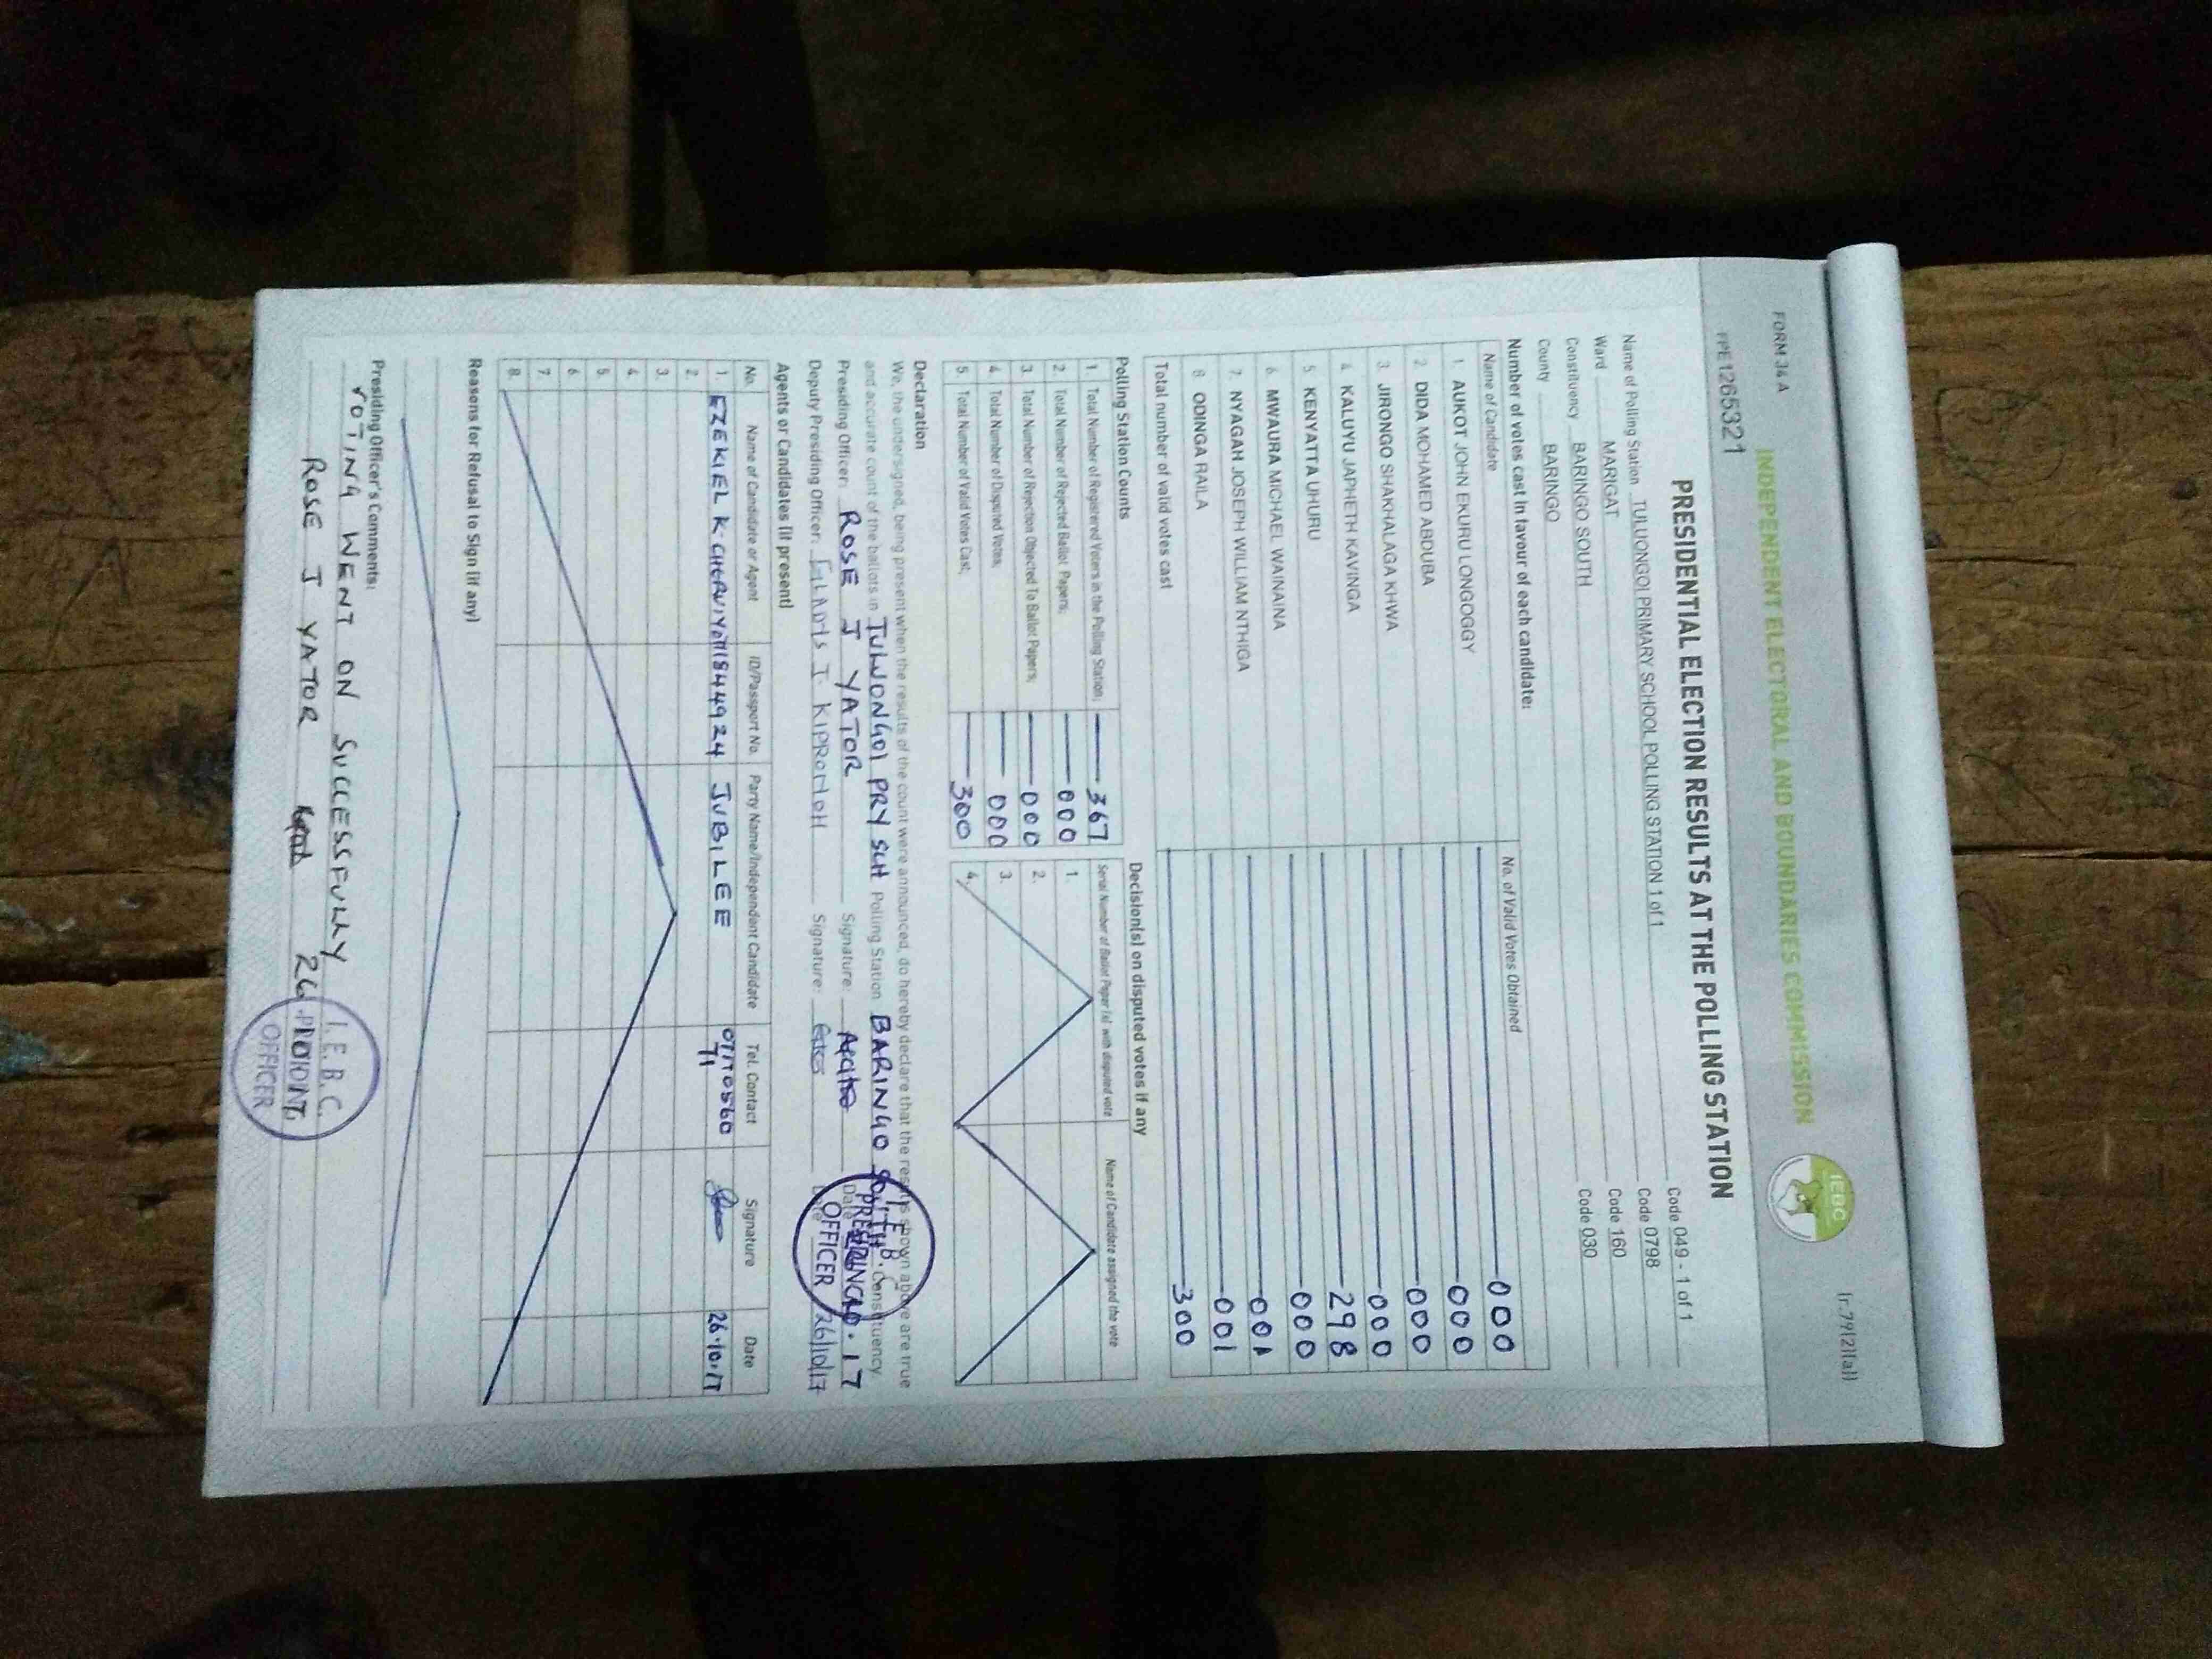 FORM 34 A
[r.79(2)(a)]
INDEPENDENT ELECTORAL AND BOUNDARIES COMMISSION
IEBC
PRE1265321
PRESIDENTIAL ELECTION RESULTS AT THE POLLING STATION
Name of Polling Station TULUONGOI PRIMARY SCHOOL POLLING STATION 1 of 1 Code 049 - 1 of 1
Ward MARIGAT Code 0798
Constituency BARINGO SOUTH Code 160
County BARINGO Code 030
Number of votes cast in favour of each candidate:
Name of Candidate No. of Valid Votes Obtained
1. AUKOT JOHN EKURU LONGOGGY 000
2. DIDA MOHAMED ABDUBA 000
3. JIRONGO SHAKHALAGA KHWA 000
4. KALUYU JAPHETH KAVINGA 000
5. KENYATTA UHURU 298
6. MWAURA MICHAEL WAINAINA 000
7. NYAGAH JOSEPH WILLIAM NTHIGA 001
8. ODINGA RAILA 001
Total number of valid votes cast 300
Polling Station Counts Decision(s) on disputed votes if any
1. Total Number of Registered Voters in the Polling Station; 367 Serial Number of Ballot Paper (s) with disputed vote Name of Candidate assigned the vote
2. Total Number of Rejected Ballot Papers; 000 1.
3. Total Number of Rejection Objected To Ballot Papers; 000 2.
4. Total Number of Disputed Votes; 000 3.
5. Total Number of Valid Votes Cast; 300 4.
Declaration
We, the undersigned, being present when the results of the count were announced, do hereby declare that the results shown above are true
and accurate count of the ballots in TULUONGOI PRY SCH Polling Station BARINGO SOUTH Constituency
Presiding Officer: ROSE J YATOR Signature: Date
Deputy Presiding Officer: GLADYS J. KIPROTICH Signature: Date 26/10/17
I.E.B.C.
PRESIDING
OFFICER
Agents or Candidates (if present)
No. Name of Candidate or Agent ID/Passport No. Party Name/Independent Candidate Tel. Contact Signature Date
1. EZEKIEL K. CHERUIYOT 11844924 JUBILEE 26.10.17
2.
3.
4.
5.
6.
7.
8.
Reasons for Refusal to Sign (if any)
Presiding Officer's Comments:
VOTING WENT ON SUCCESSFULLY
ROSE J YATOR
I.E.B.C.
OFFICER